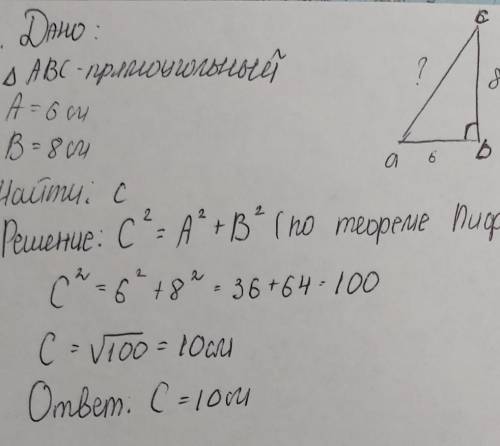 . Дано:
Δ ABC - прямоугольный
A = 6 см
B = 8 см
Найти: C
Решение: C² = A² + B² (по теореме Пиф
C² = 6² + 8² = 36 + 64 = 100
C = √100 = 10 см
Ответ: C = 10 см
c
?
8
a
6
b